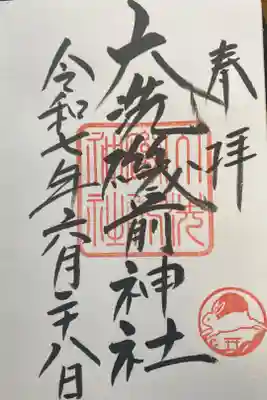 奉拝
大洗磯前神社
令和七年六月二十八日